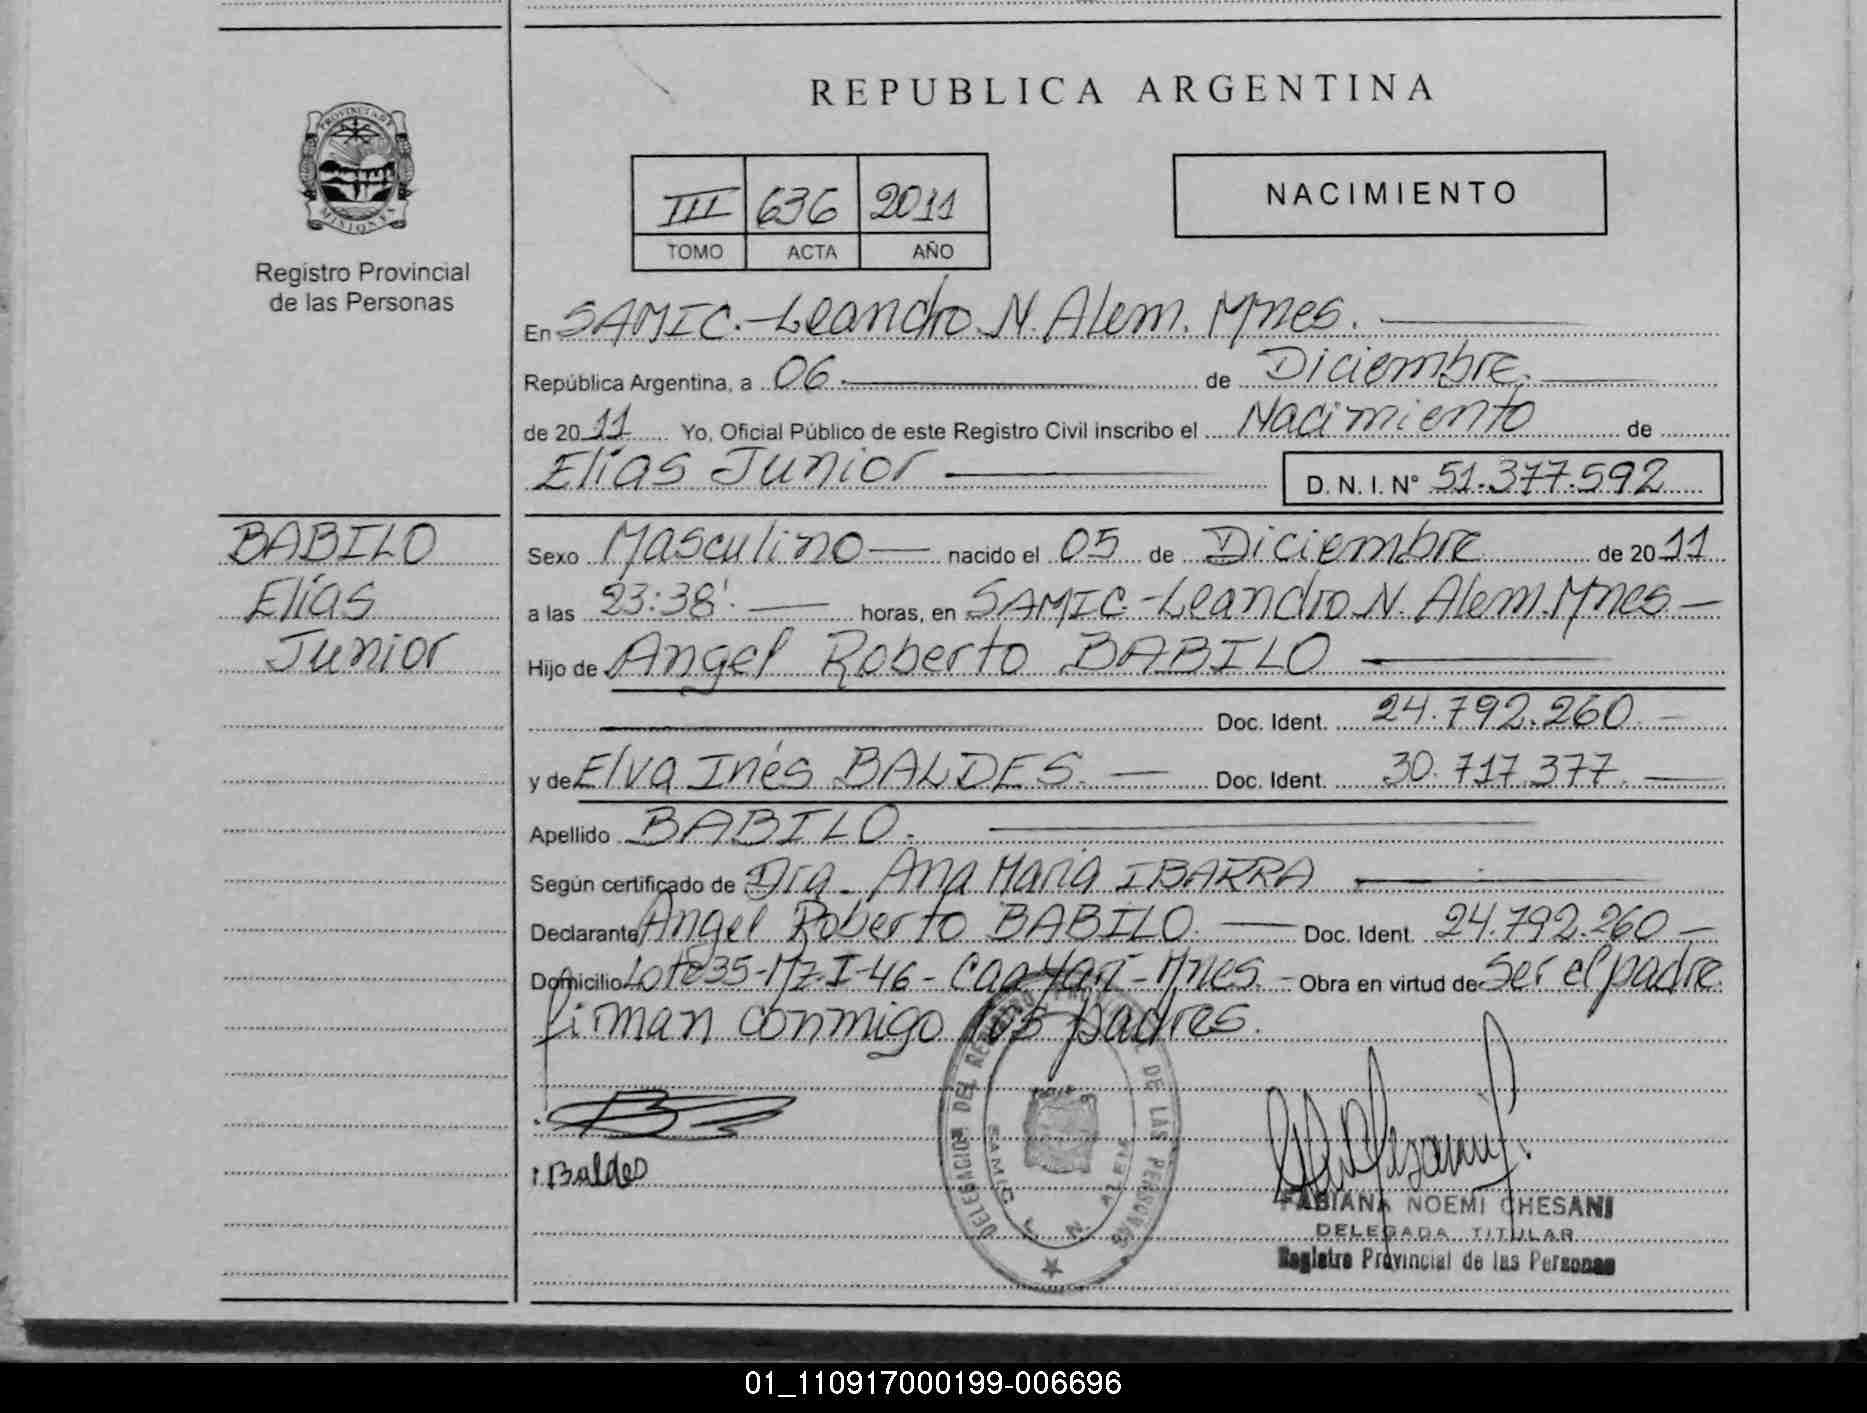 REPUBLICA ARGENTINA
PROVINCIA DE
MISIONES
Registro Provincial
de las Personas
III 636 2011
TOMO ACTA AÑO
NACIMIENTO
En SAMIC.-Leandro N. Alem. Mnes.
República Argentina, a 06. de Diciembre.
de 2011 Yo, Oficial Público de este Registro Civil inscribo el Nacimiento de
Elías Junior D.N.I. Nº 51.377.592
BABILO
Elías
Junior
Sexo Masculino nacido el 05 de Diciembre de 2011
a las 23:38'. horas, en SAMIC-Leandro N. Alem. Mnes
Hijo de Angel Roberto BABILO
Doc. Ident. 24.792.260
y de Elva Inés BALDES. Doc. Ident. 30.717.377.
Apellido BABILO.
Según certificado de Dra. Ana María IBARRA
Declarante Angel Roberto BABILO. Doc. Ident. 24.792.260
Domicilio Lote 35-Mz.I-46- Caa Yarí-Mnes. Obra en virtud de Ser el padre.
firman conmigo los padres.
Baldes
DELEGACION DEL REGISTRO PROVINCIAL DE LAS PERSONAS
SAMIC L. N. ALEM
FABIANA NOEMI CHESANI
DELEGADA TITULAR
Registro Provincial de las Personas
01_110917000199-006696